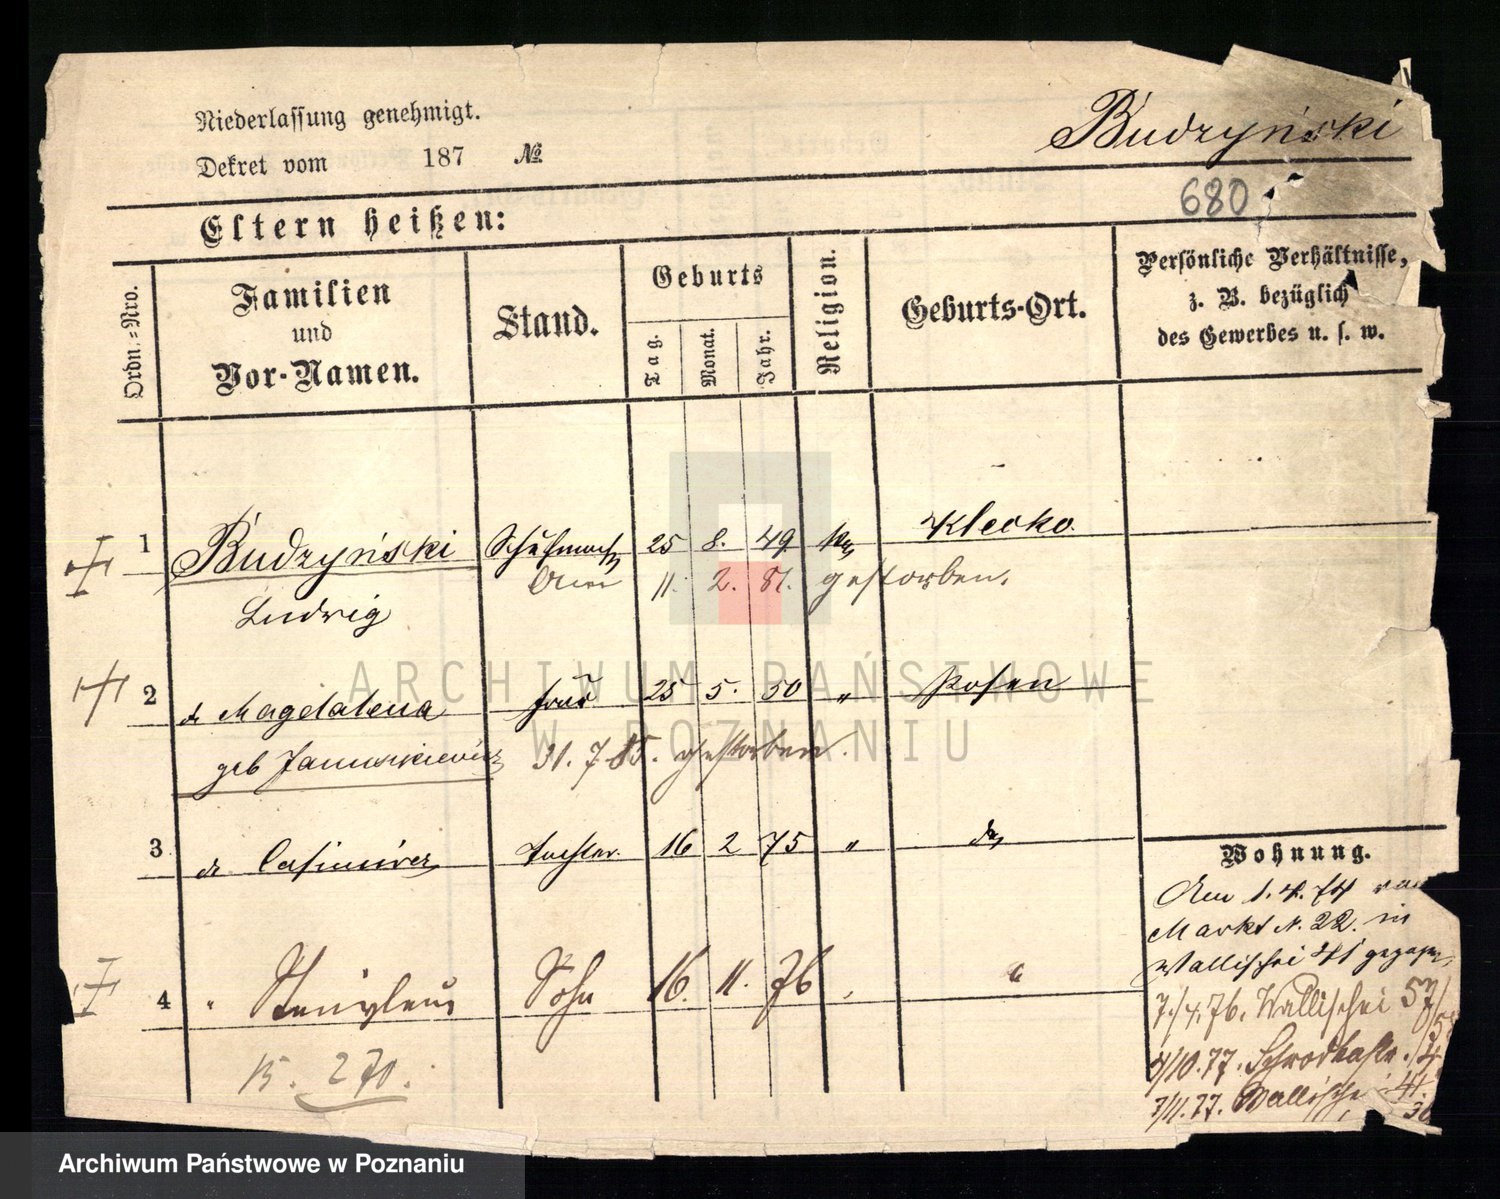 Niederlassung genehmigt.
Budzyński
Dekret vom 187 №
680
Eltern heißen:
Ordn.-Nro.
Familien und Vor-Namen.
Stand.
Geburts
Tag. Monat. Jahr.
Religion.
Geburts-Ort.
Persönliche Verhältnisse, z. B. bezüglich des Gewerbes u. s. w.
1 Budzyński Schuhmach 25 8. 49. Klecko.
Ludwig 11. 2. 81. gestorben.
2 Magdalena Frau 25 5. 50 " Posen
geb 31. 7. 85. gestorben.
3 Casimira Tochter. 16 2 75 "
4 " Sohn 16. 11. 76
15. 270.
Wohnung.
Am 1. 4. 74 von
Markt N. 22. in
Wallischei 41
7/4. 76. Wallischei 57/
4/10. 77.
7/11. 77. Wallischei
ARCHIWUM PAŃSTWOWE
W POZNANIU
Archiwum Państwowe w Poznaniu